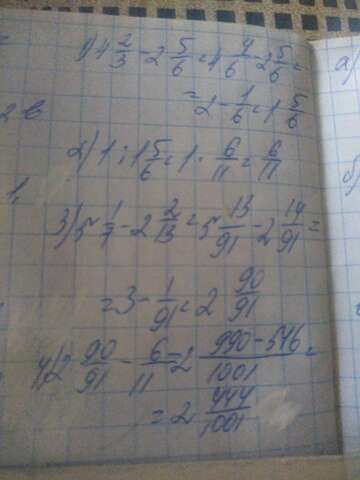 1) 4 2/3 - 2 5/6 = 4 4/6 - 2 5/6 =
= 2 - 1/6 = 1 5/6
2) 1 : 1 5/6 = 1 · 6/11 = 6/11
3) 5 1/7 - 2 2/13 = 5 13/91 - 2 14/91 =
= 3 - 1/91 = 2 90/91
4) 2 90/91 - 6/11 = 2 (990 - 546)/1001 =
= 2 444/1001
а)
б)
2 в
1.